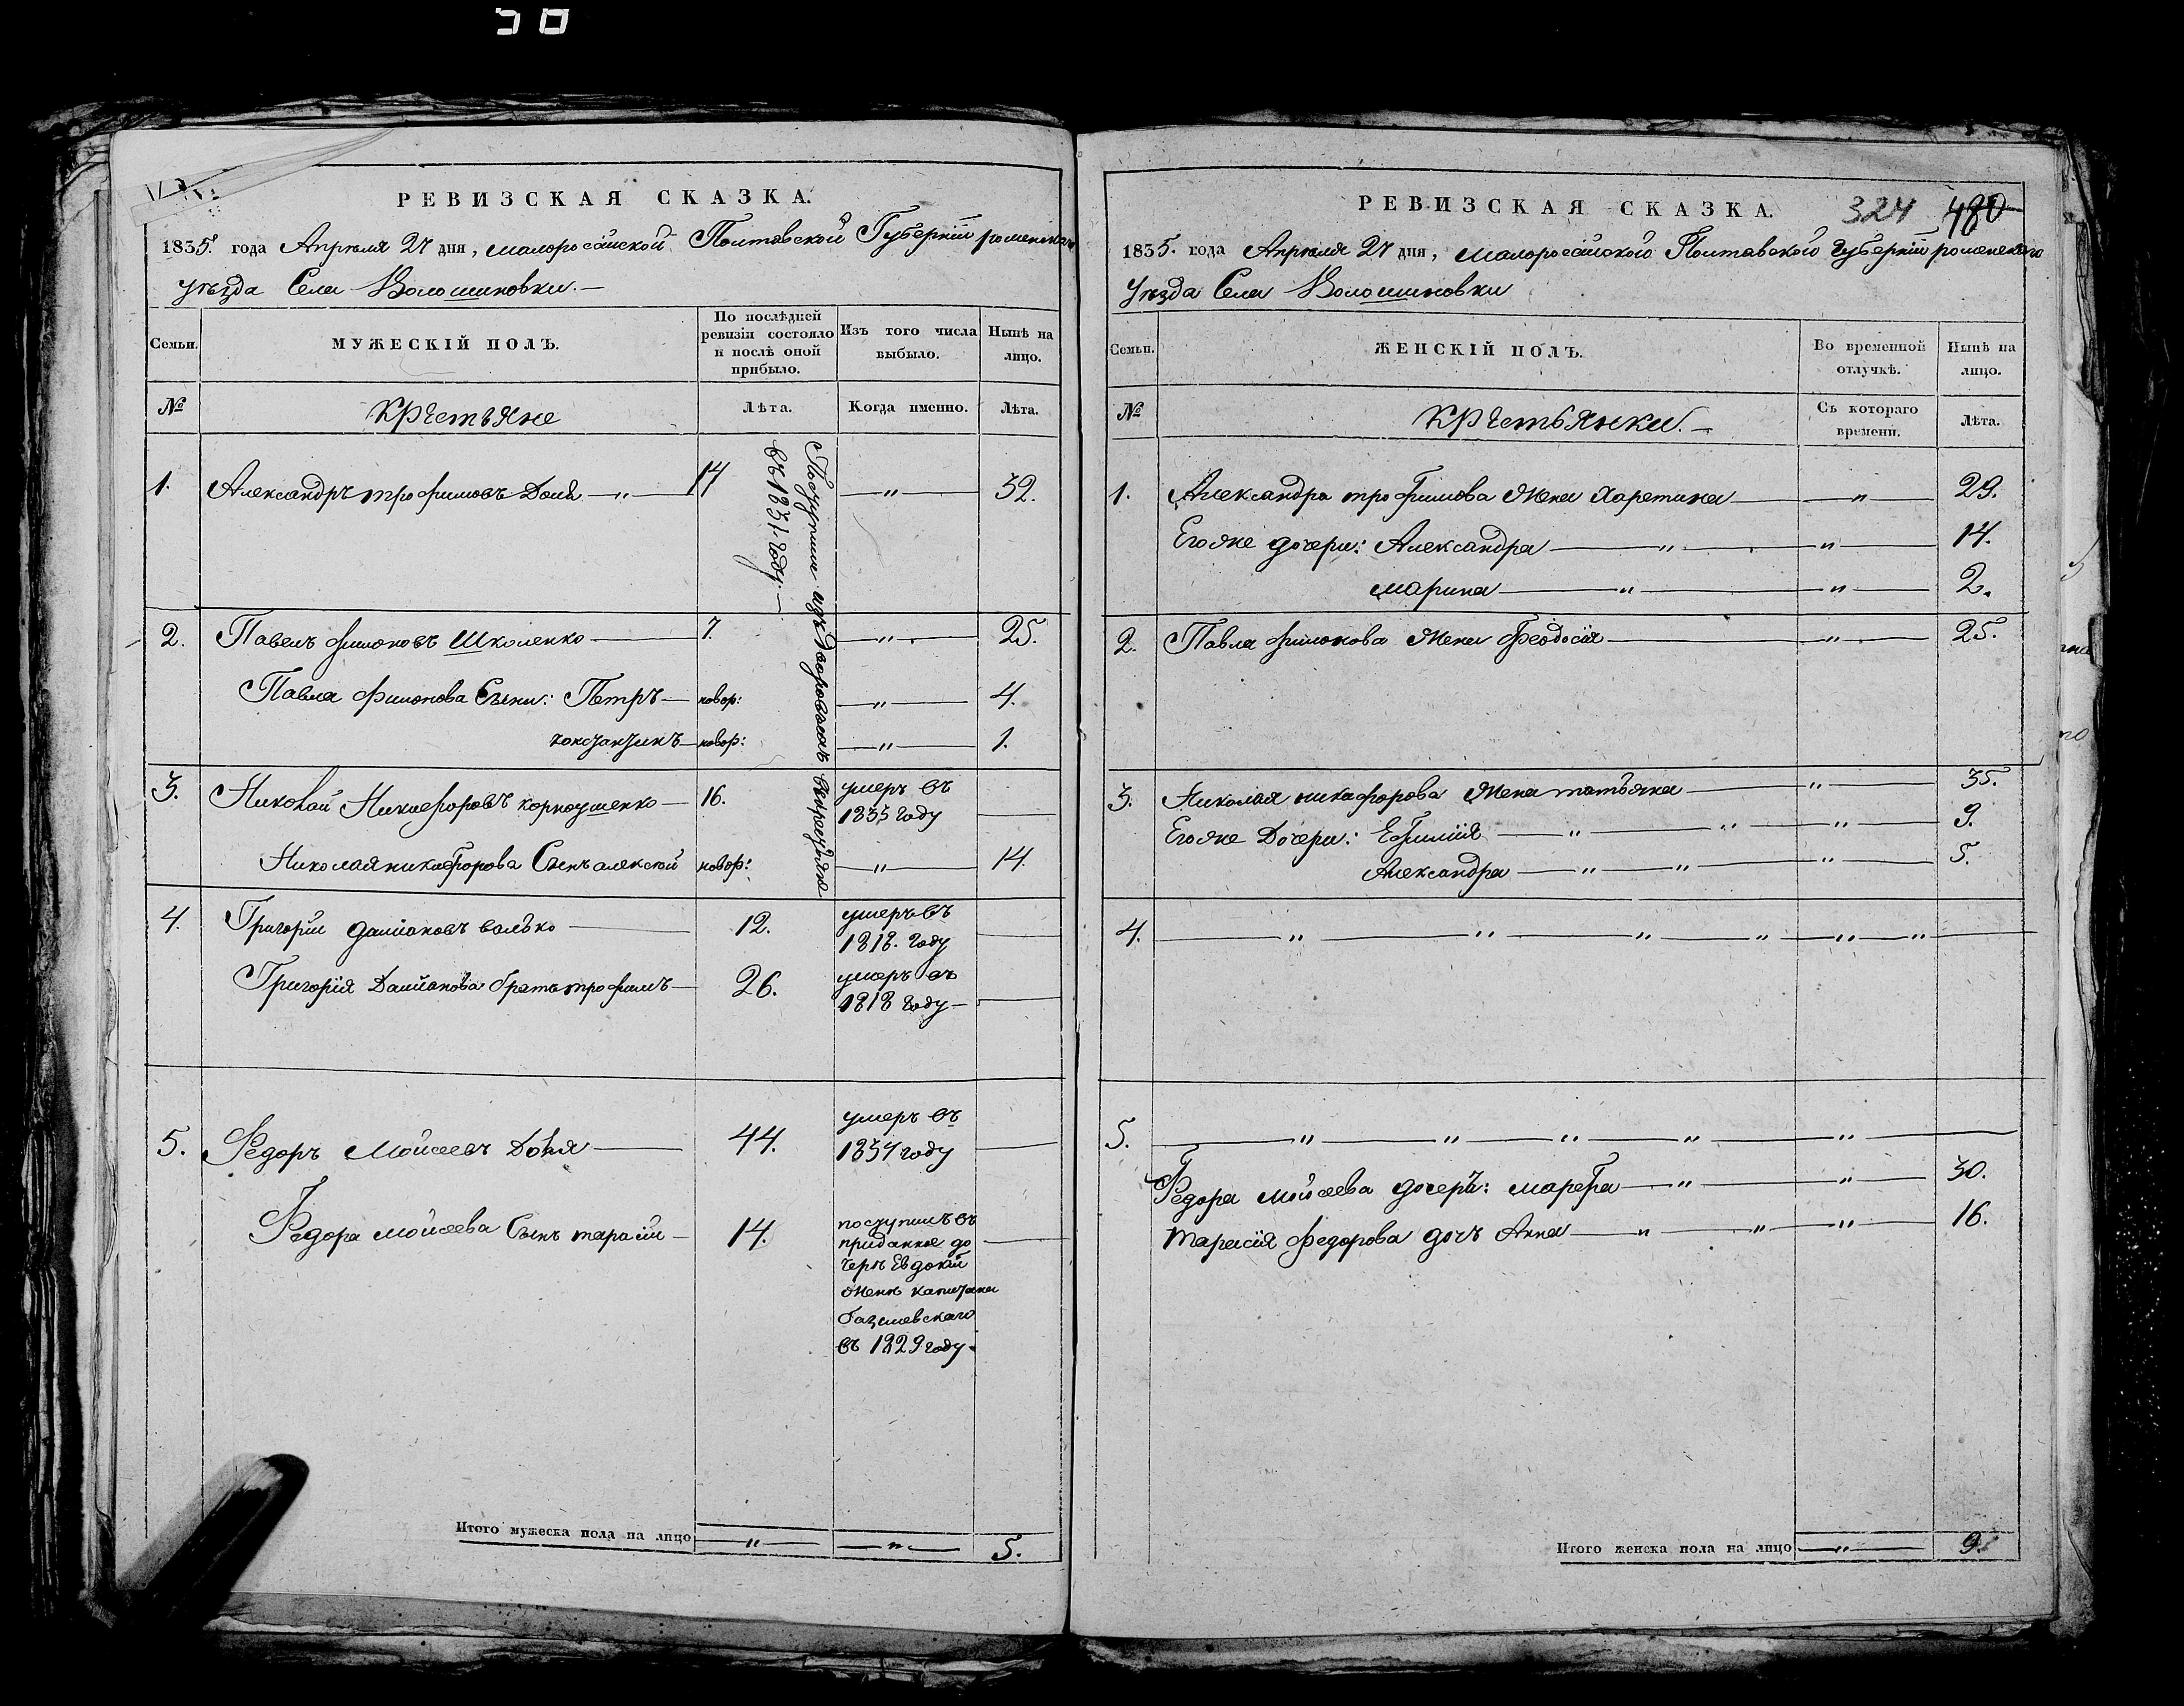 РЕВИЗСКАЯ СКАЗКА.
1835. года Апреля 27 дня, малоросійской Полтавской Губерніи роменскаго
уѣзда Села Волошиновки.—
Семьи.
МУЖЕСКІЙ ПОЛЪ.
По послѣдней ревизіи состояло и послѣ оной прибыло.
Изъ того числа выбыло.
Нынѣ на лицо.
№
крестьяне
Лѣта.
Когда именно.
Лѣта.
Поступили изъ Дворовыхъ
въ 1831 году.—
1. Александръ трофимовъ —„— 14 —„— 32.
2. Павелъ филоновъ Школенко — 7. —„— 25.
Павла филонова Сыни: Петръ — новор: —„— 4.
константинъ — новор: —„— 1.
3. Николай Никифоровъ корноушенко — 16. умеръ въ
1835 году —
Николая никифорова Сынъ алексѣй новор: —„— 14.
4. Григорій даміановъ валько — 12. умеръ въ
1818. году —
Григорія Даміанова братъ трофимъ — 26. умеръ въ
1818 году —
5. Федоръ Мойсеевъ — 44. умеръ въ
1834 году —
Федора мойсеева Сынъ тарасій — 14. поступилъ въ
приданное до
черѣ Евдокіи
женѣ капитана
базилевскаго
въ 1829 году.
Итого мужеска пола на лицо —„— —„— 5.
РЕВИЗСКАЯ СКАЗКА.
324 480
1835. года Апреля 27 дня, малоросійской Полтавской губерніи роменскаго
уѣзда Села Волошиновки
Семьи.
ЖЕНСКІЙ ПОЛЪ.
Во временной отлучкѣ.
Нынѣ на лицо.
№
крестьянки.—
Съ котораго времени.
Лѣта.
1. Александра трофимова Жена Харетина —„— 29.
Его же дочери: Александра —„— „ — 14.
марина —„— „ — 2.
2. Павла филонова Жена Феодосія —„— 25.
3. Николая никифорова Жена татьяна —„— 35.
Его же Дочери: Ефимія —„—„—„— 9.
Александра —„—„—„— 5.
4. —„—„—„—„—„—„—
5. —„—„—„—„—„—
Федора мойсеева дочерь: марфа —„—„— 30.
тарасія федорова дочь Анна —„—„—„— 16.
Итого женска пола на лицо —„— 9.